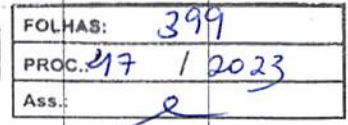 FOLHAS: 399
PROC.: 217 / 2023
Ass.: